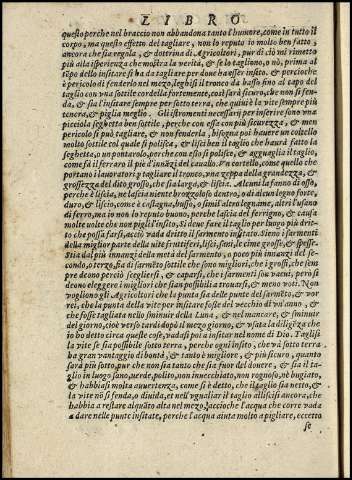 LIBRO
questo perche nel braccio non abbandona tanto l'humore, come in tutto il
corpo, ma questo effetto del tagliare, non lo reputo io molto ben fatto,
ancora che sia regola, & dottrina di Agricoltori, pur di ciò mi rimetto
più alla isperienza che mostra la verità, & se lo tagliono, o nò, prima al
tẽpo dello insitare si ha da tagliare per doue haußer insito. & percioche
è pericolo di fenderlo nel mezo, leghisi il tronco da basso fino al capo del
taglio con vna sottile corde fortemente, così sarà sicuro, che non si fen-
da, & sia l'insitare sempre per sotto terra, che quiui è la vite sempre più
tenera, & piglia meglio. Gli istromenti necessarij per inserire sono vna
picciola seghetta ben sottile, perche con essa con più sicurezza, & men
pericolo si può tagliare, & non fenderla, bisogna poi hauere un coltello
molto sottile col quale si polisca, & lisci ben il taglio che haurà fatto la
seghetta, o un pontarolo, perche con esso si polisce, & agguaglia il taglio,
come fa il ferraro il piè d'inãzi del cauallo. Vn cortello, come quello che
portano i lauoratori, & tagliare il tronco, vna zeppa della grandezza, &
grossezza del dito grosso, che sia largo, & liscio. Alcuni la fanno di osso,
perche è liscia, ne lascia niente bronzoloso dentro, o di alcun legno forte,
duro, & liscio, come è castagna, busso, o simil'altro legname, altri l'usano
di ferro, ma io non lo reputo buono, perche lascia del ferrigno, & causa
molte volte che non pigli l'insito, si deue fare il taglio per luogo più drit-
to che possa farsi, acciò vada dritto il sarmento insitato. Sieno i sarmenti
della miglior parte della vite fruttiferi, lisci, soni, le cime grosse, & spesse.
Stia dal piu innanzi della metà del sarmento, o poco più innanzi del se-
condo, o terzo, sia di sarmẽto sottile che son migliori, che i grossi, che sem-
pre deono percio scegliersi, & caparsi, che i sarmenti son vani, però si
deono eleggere i migliori che sian possibili a trouarsi, & meno voti. Non
vogliono gli Agricoltori che la punta sia delle punte del sarmẽto, & vor
rei, che la punta della vite per insitare fosse del vecchio di vn'anno, &
che fosse tagliata nello sminuir della Luna, & nel mancare, & sminuir
del giorno, cioè verso tardi dopò il mezo giorno, & vsata la diligẽza che
io ho detto circa queste cose, vadasi poi a insitar nel nome di Dio. Taglisi
la vite se sia possibile sotto terra, perche ogni insito, che và sotto terra,
ha gran vantaggio di bontà, & tanto è migliore, & più sicuro, quanto
sarà più sotto, pur che non sia tanto che sia fuor del douere, & sia il ta-
glio in luogo sano, uerde, polito, non inuecchiato, non rognoso, nè bugiato,
& habbiasi molta auuertenza, come si è detto, che il taglio sia netto, &
la vite nõ si fenda, o diuida, et nell'vgualiar il taglio allisciisi ancora, che
habbia a restare alquãto alta nel mezo, accioche l'acqua che corre vada
a dare nelle punte insitate, perche l'acqua aiuta molto a pigliare, eccetto
se